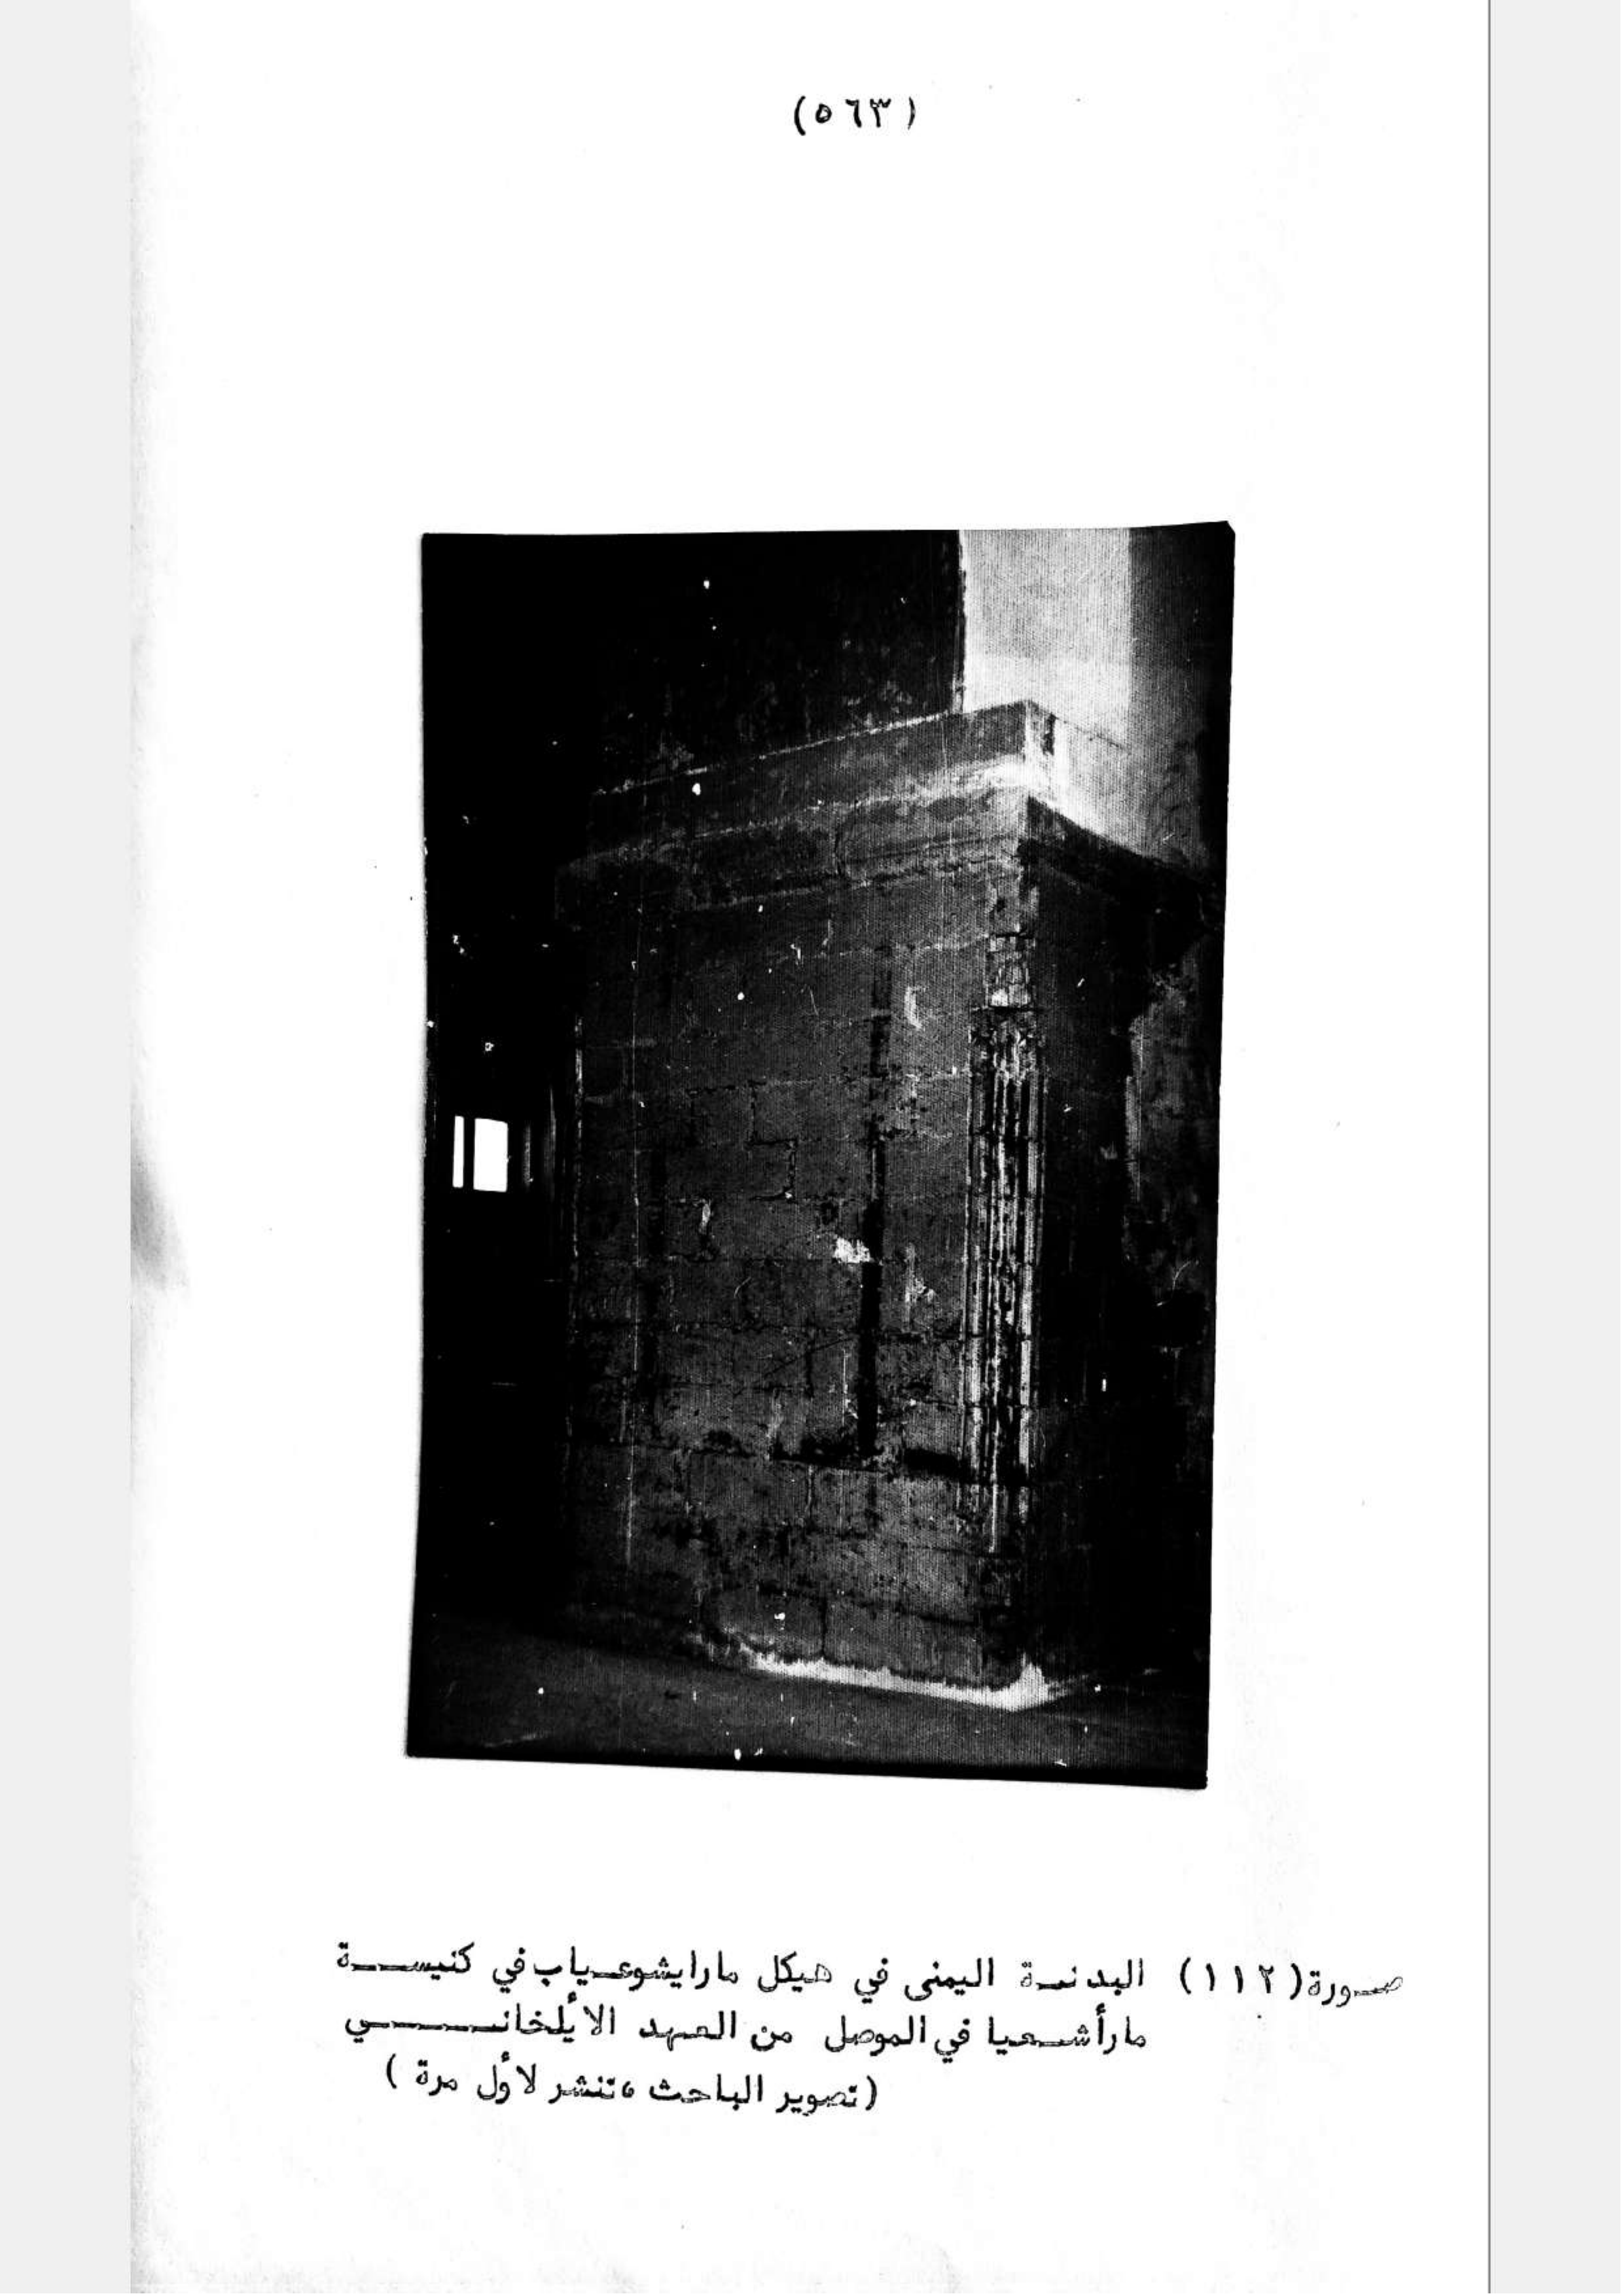 (٥٦٣)
صورة (١١٢) البدنة اليمنى في هيكل مارايشوعياب في كنيسة
مارأشعيا في الموصل من العهد الأيلخاني
(تصوير الباحث، تنشر لأول مرة)